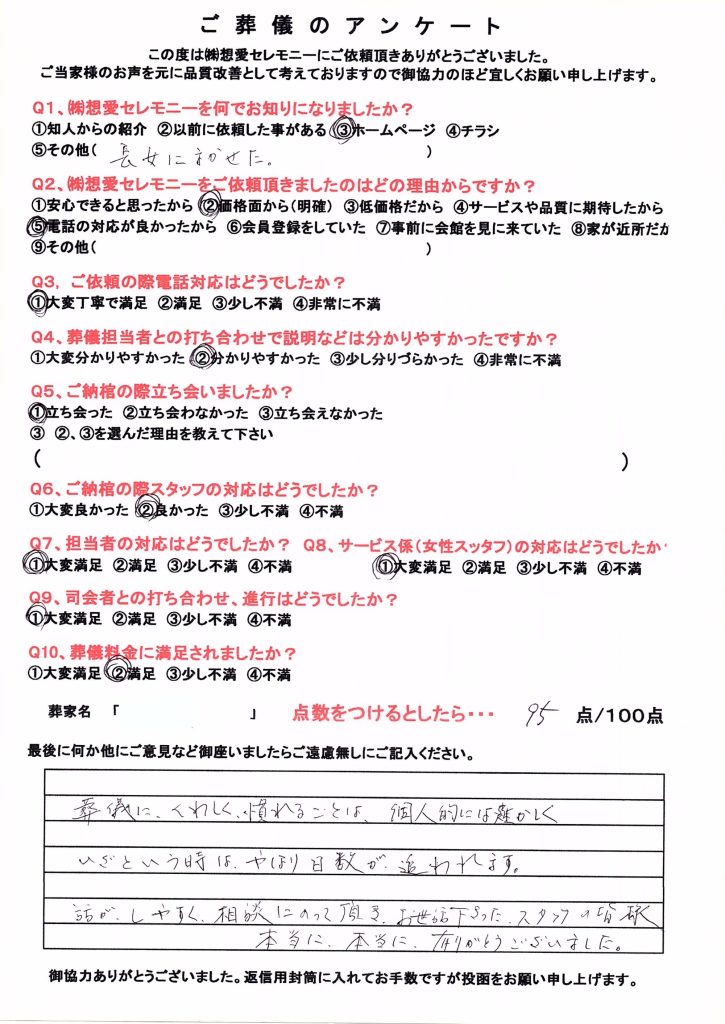 ご葬儀のアンケート
この度は㈱想愛セレモニーにご依頼頂きありがとうございました。
ご当家様のお声を元に品質改善として考えておりますので御協力のほど宜しくお願い申し上げます。
Q1、㈱想愛セレモニーを何でお知りになりましたか？
①知人からの紹介 ②以前に依頼した事がある ③ホームページ ④チラシ
⑤その他( 長女にまかせた。 )
Q2、㈱想愛セレモニーをご依頼頂きましたのはどの理由からですか？
①安心できると思ったから ②価格面から(明確) ③低価格だから ④サービスや品質に期待したから
⑤電話の対応が良かったから ⑥会員登録をしていた ⑦事前に会館を見に来ていた ⑧家が近所だか
⑨その他( )
Q3, ご依頼の際電話対応はどうでしたか？
①大変丁寧で満足 ②満足 ③少し不満 ④非常に不満
Q4、葬儀担当者との打ち合わせで説明などは分かりやすかったですか？
①大変分かりやすかった ②分かりやすかった ③少し分りづらかった ④非常に不満
Q5、ご納棺の際立ち会いましたか？
①立ち会った ②立ち会わなかった ③立ち会えなかった
③ ②、③を選んだ理由を教えて下さい
( )
Q6、ご納棺の際スタッフの対応はどうでしたか？
①大変良かった ②良かった ③少し不満 ④不満
Q7、担当者の対応はどうでしたか？ Q8、サービス係(女性スッタフ)の対応はどうでしたか
①大変満足 ②満足 ③少し不満 ④不満 ①大変満足 ②満足 ③少し不満 ④不満
Q9、司会者との打ち合わせ、進行はどうでしたか？
①大変満足 ②満足 ③少し不満 ④不満
Q10、葬儀料金に満足されましたか？
①大変満足 ②満足 ③少し不満 ④不満
葬家名 「 」 点数をつけるとしたら・・・ 95 点/100点
最後に何か他にご意見など御座いましたらご遠慮無しにご記入ください。
葬儀に、くわしく、慣れることは、個人的には難かしく
いざという時は、やはり日数が、追われます。
話が、しやすく、相談にのって頂き、お世話下さった、スタッフの皆様
本当に、本当に、有りがとうございました。
御協力ありがとうございました。返信用封筒に入れてお手数ですが投函をお願い申し上げます。